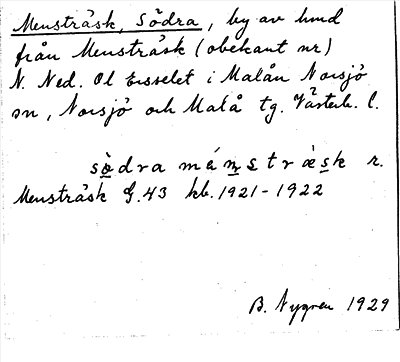 Mensträsk, Södra, by av hmd
från Mensträsk (obekant nr)
N. Ned. Ol i Malån Norsjö
sn, Norsjö och Malå tg. Västerb. l.
södra ménstræsk r.
Mensträsk G.43 kb. 1921-1922
B. Nygren 1929